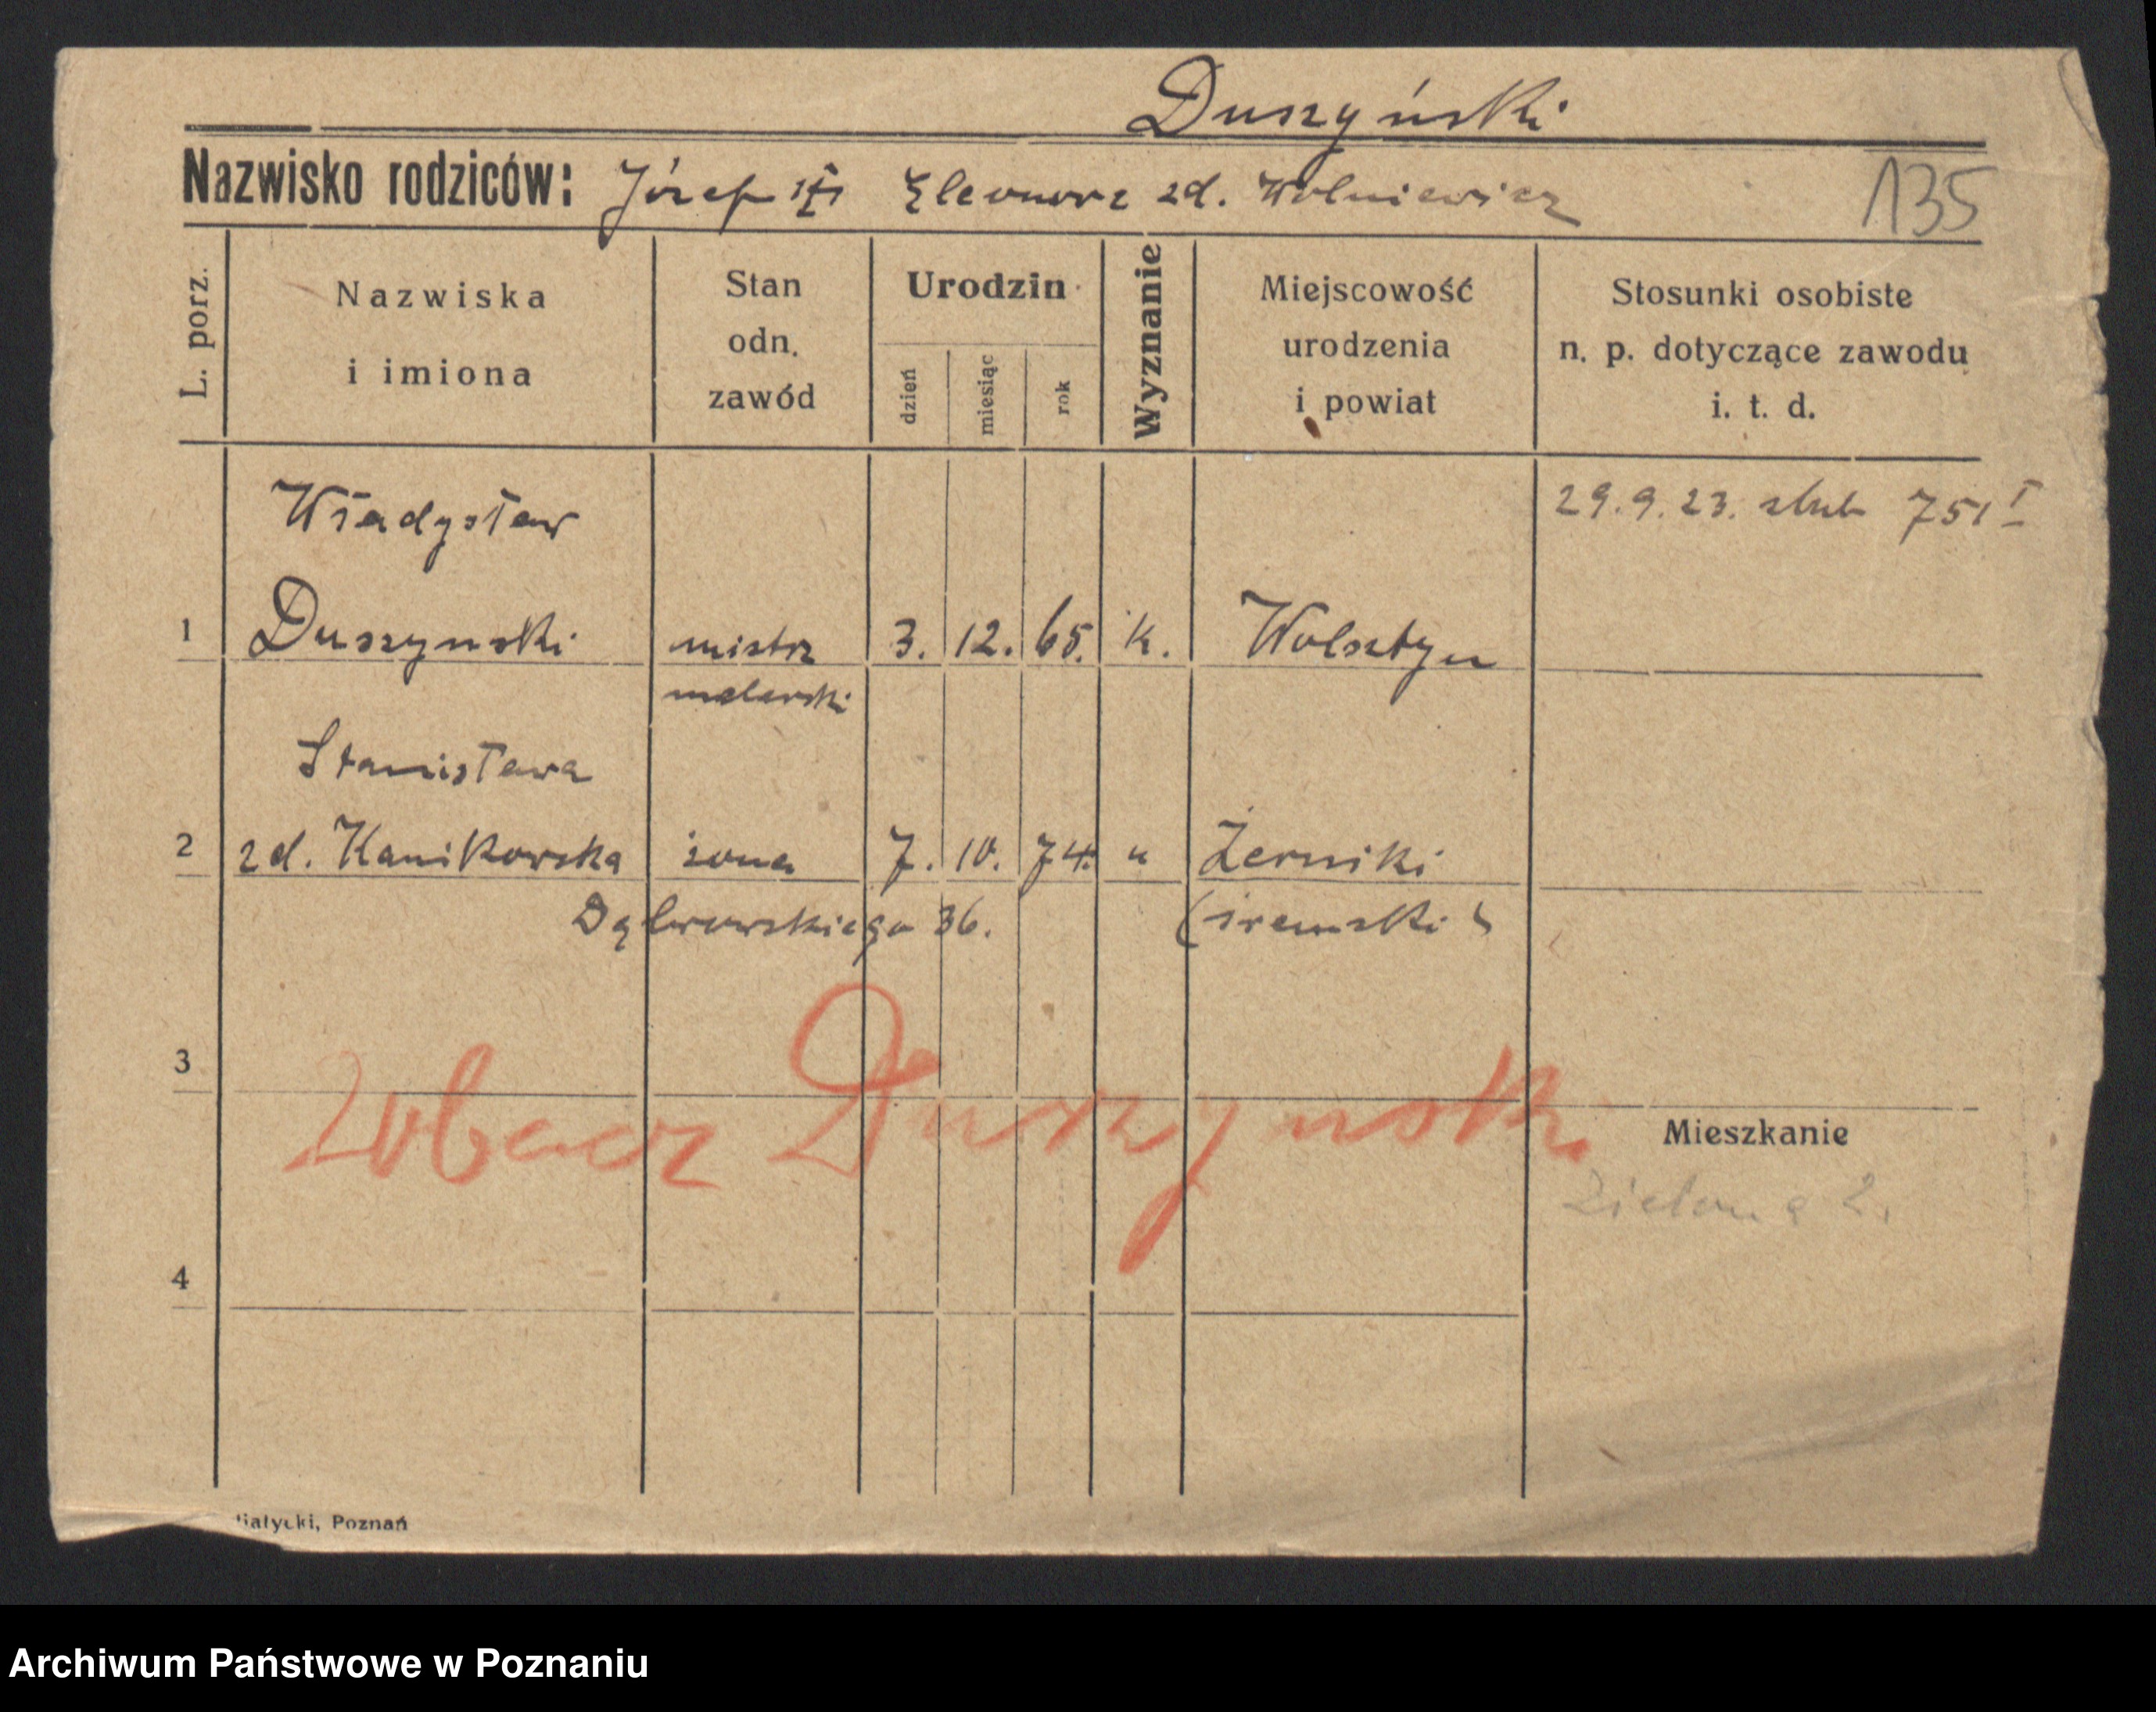 Duszyński
Nazwisko rodziców: Józef i Eleonora zd. Wolniewicz
135
L. porz.
Nazwiska
i imiona
Stan
odn.
zawód
Urodzin
dzień
miesiąc
rok
Wyznanie
Miejscowość
urodzenia
i powiat
Stosunki osobiste
n. p. dotyczące zawodu
i. t. d.
Władysław
29.9.23. 751 I
1 Duszynski mistrz 3. 12. 65. k. Wolsztyn
malarski
Stanisława
2 zd. Kanikowska żona 7. 10. 74. " Żerniki
Dąbrowskiego 36. (śremski)
3
Zobacz Duszynski
Mieszkanie
Zielona 2.
4
iałycki, Poznań
Archiwum Państwowe w Poznaniu